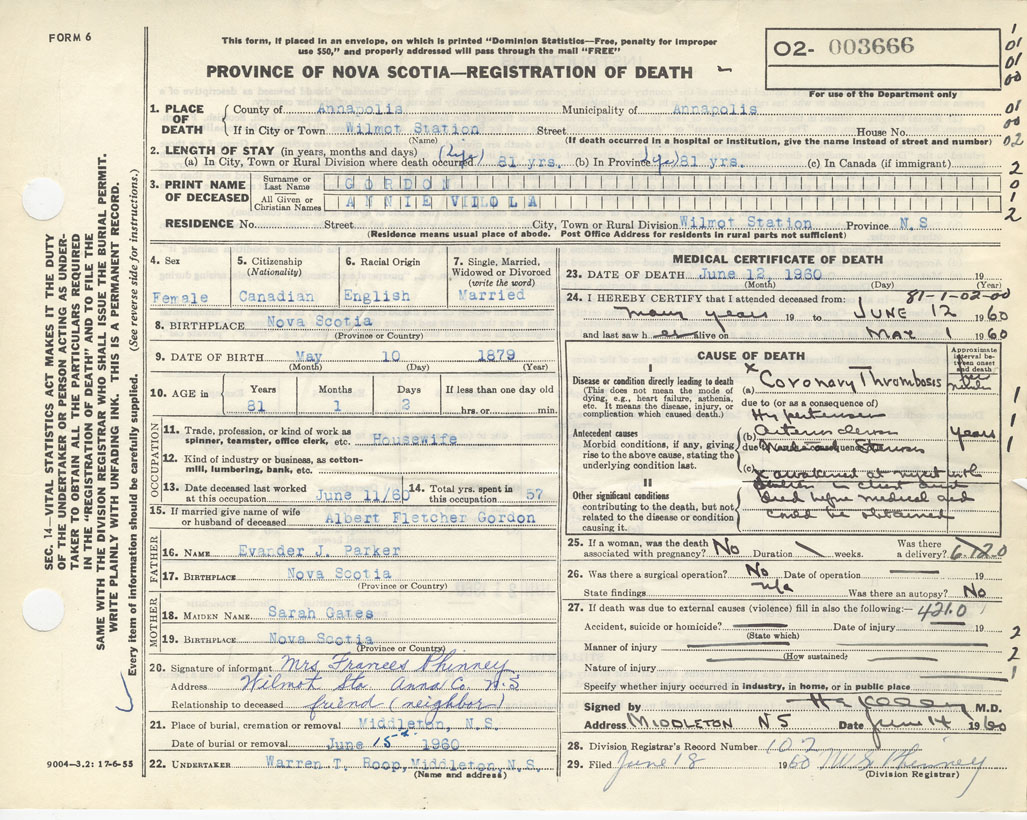 FORM 6
This form, if placed in an envelope, on which is printed "Dominion Statistics—Free, penalty for improper
use $50," and properly addressed will pass through the mail "FREE"
PROVINCE OF NOVA SCOTIA—REGISTRATION OF DEATH
02- 003666
For use of the Department only
1. PLACE OF DEATH County of Annapolis Municipality of Annapolis
If in City or Town Wilmot Station Street House No.
(Name) (If death occurred in a hospital or institution, give the name instead of street and number)
2. LENGTH OF STAY (in years, months and days)
(a) In City, Town or Rural Division where death occurred 81 yrs. (b) In Province 81 yrs. (c) In Canada (if immigrant)
3. PRINT NAME OF DECEASED Surname or Last Name GORDON
All Given or Christian Names ANNIE VIOLA
RESIDENCE No. Street City, Town or Rural Division Wilmot Station Province N.S
(Residence means usual place of abode. Post Office Address for residents in rural parts not sufficient)
4. Sex Female
5. Citizenship (Nationality) Canadian
6. Racial Origin English
7. Single, Married, Widowed or Divorced (write the word) Married
8. BIRTHPLACE Nova Scotia
(Province or Country)
9. DATE OF BIRTH May 10 1879
(Month) (Day) (Year)
10. AGE in Years Months Days If less than one day old
81 1 2 hrs. or min.
OCCUPATION
11. Trade, profession, or kind of work as spinner, teamster, office clerk, etc. Housewife
12. Kind of industry or business, as cotton-mill, lumbering, bank, etc.
13. Date deceased last worked at this occupation June 11/60 14. Total yrs. spent in this occupation 57
15. If married give name of wife or husband of deceased Albert Fletcher Gordon
FATHER
16. NAME Evander J. Parker
17. BIRTHPLACE Nova Scotia
(Province or Country)
MOTHER
18. MAIDEN NAME Sarah Gates
19. BIRTHPLACE Nova Scotia
(Province or Country)
20. Signature of informant Mrs Frances Phinney
Address Wilmot Sta. Anna Co. N.S
Relationship to deceased friend (neighbor)
21. Place of burial, cremation or removal Middleton, N.S.
Date of burial or removal June 15th 1960
22. UNDERTAKER Warren T. Roop, Middleton, N.S.
(Name and address)
MEDICAL CERTIFICATE OF DEATH
23. DATE OF DEATH June 12, 1960 19
(Month) (Day) (Year)
81-1-02-00
24. I HEREBY CERTIFY that I attended deceased from:
many years 19 to JUNE 12 1960
and last saw her alive on MAY 1 1960
CAUSE OF DEATH
Approximate interval between onset and death
I
Disease or condition directly leading to death (a) Coronary Thrombosis
(This does not mean the mode of dying, e.g., heart failure, asthenia, etc. It means the disease, injury, or complication which caused death.)
due to (or as a consequence of)
Hypertension
Antecedent causes (b) years
Morbid conditions, if any, giving rise to the above cause, stating the underlying condition last.
(c)
II
Other significant conditions contributing to the death, but not related to the disease or condition causing it.
died before medical aid
could be obtained
25. If a woman, was the death associated with pregnancy? No Duration weeks. Was there a delivery?
26. Was there a surgical operation? No Date of operation 19
State findings n/a Was there an autopsy? No
27. If death was due to external causes (violence) fill in also the following:— 4210
Accident, suicide or homicide? Date of injury 19
(State which)
Manner of injury
(How sustained)
Nature of injury
Specify whether injury occurred in industry, in home, or in public place
Signed by M.D.
Address MIDDLETON NS Date June 14 1960
28. Division Registrar's Record Number 102
29. Filed June 18 1960 Phinney
(Division Registrar)
SEC. 14—VITAL STATISTICS ACT MAKES IT THE DUTY
OF THE UNDERTAKER OR PERSON ACTING AS UNDER-
TAKER TO OBTAIN ALL THE PARTICULARS REQUIRED
IN THE "REGISTRATION OF DEATH" AND TO FILE THE
SAME WITH THE DIVISION REGISTRAR WHO SHALL ISSUE THE BURIAL PERMIT.
WRITE PLAINLY WITH UNFADING INK. THIS IS A PERMANENT RECORD.
Every item of information should be carefully supplied. (See reverse side for instructions.)
9004—3.2: 17-6-55